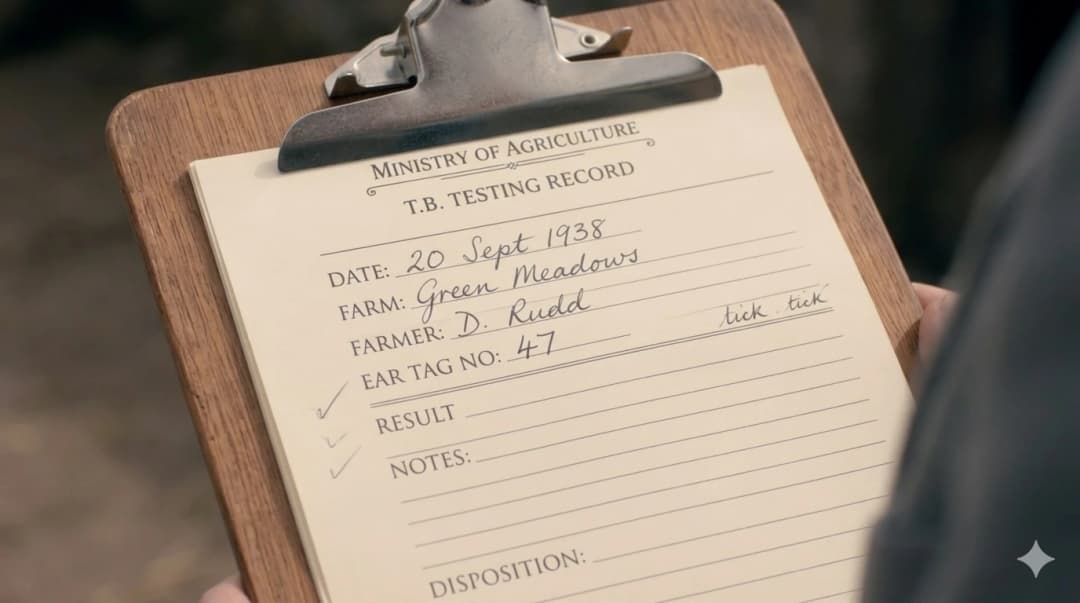 MINISTRY OF AGRICULTURE
T.B. TESTING RECORD
DATE: 20 Sept 1938
FARM: Green Meadows
FARMER: D. Rudd
tick tick
EAR TAG NO: 47
RESULT
NOTES:
DISPOSITION: